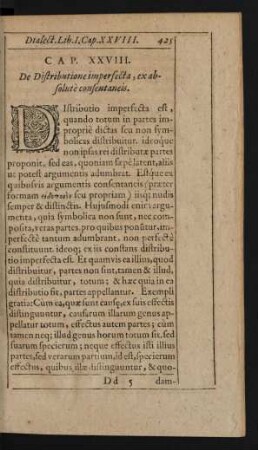 Dialect. Lib. I. Cap. XXVIII. 425
CAP. XXVIII.
De Distributione imperfecta, ex ab-
solutè consentaneis.
DIstributio imperfecta est,
quando totum in partes im-
propriè dictas seu non sym-
bolicas distribuitur. ideoque
non ipsas rei distributæ partes
proponit, sed eas, quoniam sæpè latent, aliis
ut potest argumentis adumbrat. Estque ex
quibusvis argumentis consentaneis (præter
formam seu propriam) iisq; nudis
semper & distinctis. Hujusmodi enim argu-
menta, quia symbolica non sunt, nec com-
posita, veras partes, pro quibus ponuntur, im-
perfectè tantum adumbrant, non perfectè
constituunt. ideoq; ex iis constans distribu-
tio imperfecta est. Et quamvis ea illius, quod
distribuitur, partes non sint, tamen & illud,
quia distribuitur, totum; & hæc quia in ea
distributio sit, partes appellantur. Exempli
gratia: Cum ea, quæ sunt causæ, ex suis effectis
distinguuntur, causarum illarum genus ap-
pellatur totum, effectus autem partes; cùm
tamen neq; illud genus horum totum sit, sed
suarum specierum; neque effectus isti illius
partes, sed verarum partium, id est, specierum
effectus, quibus illæ distinguuntur, & quo-
D d 5 dam-